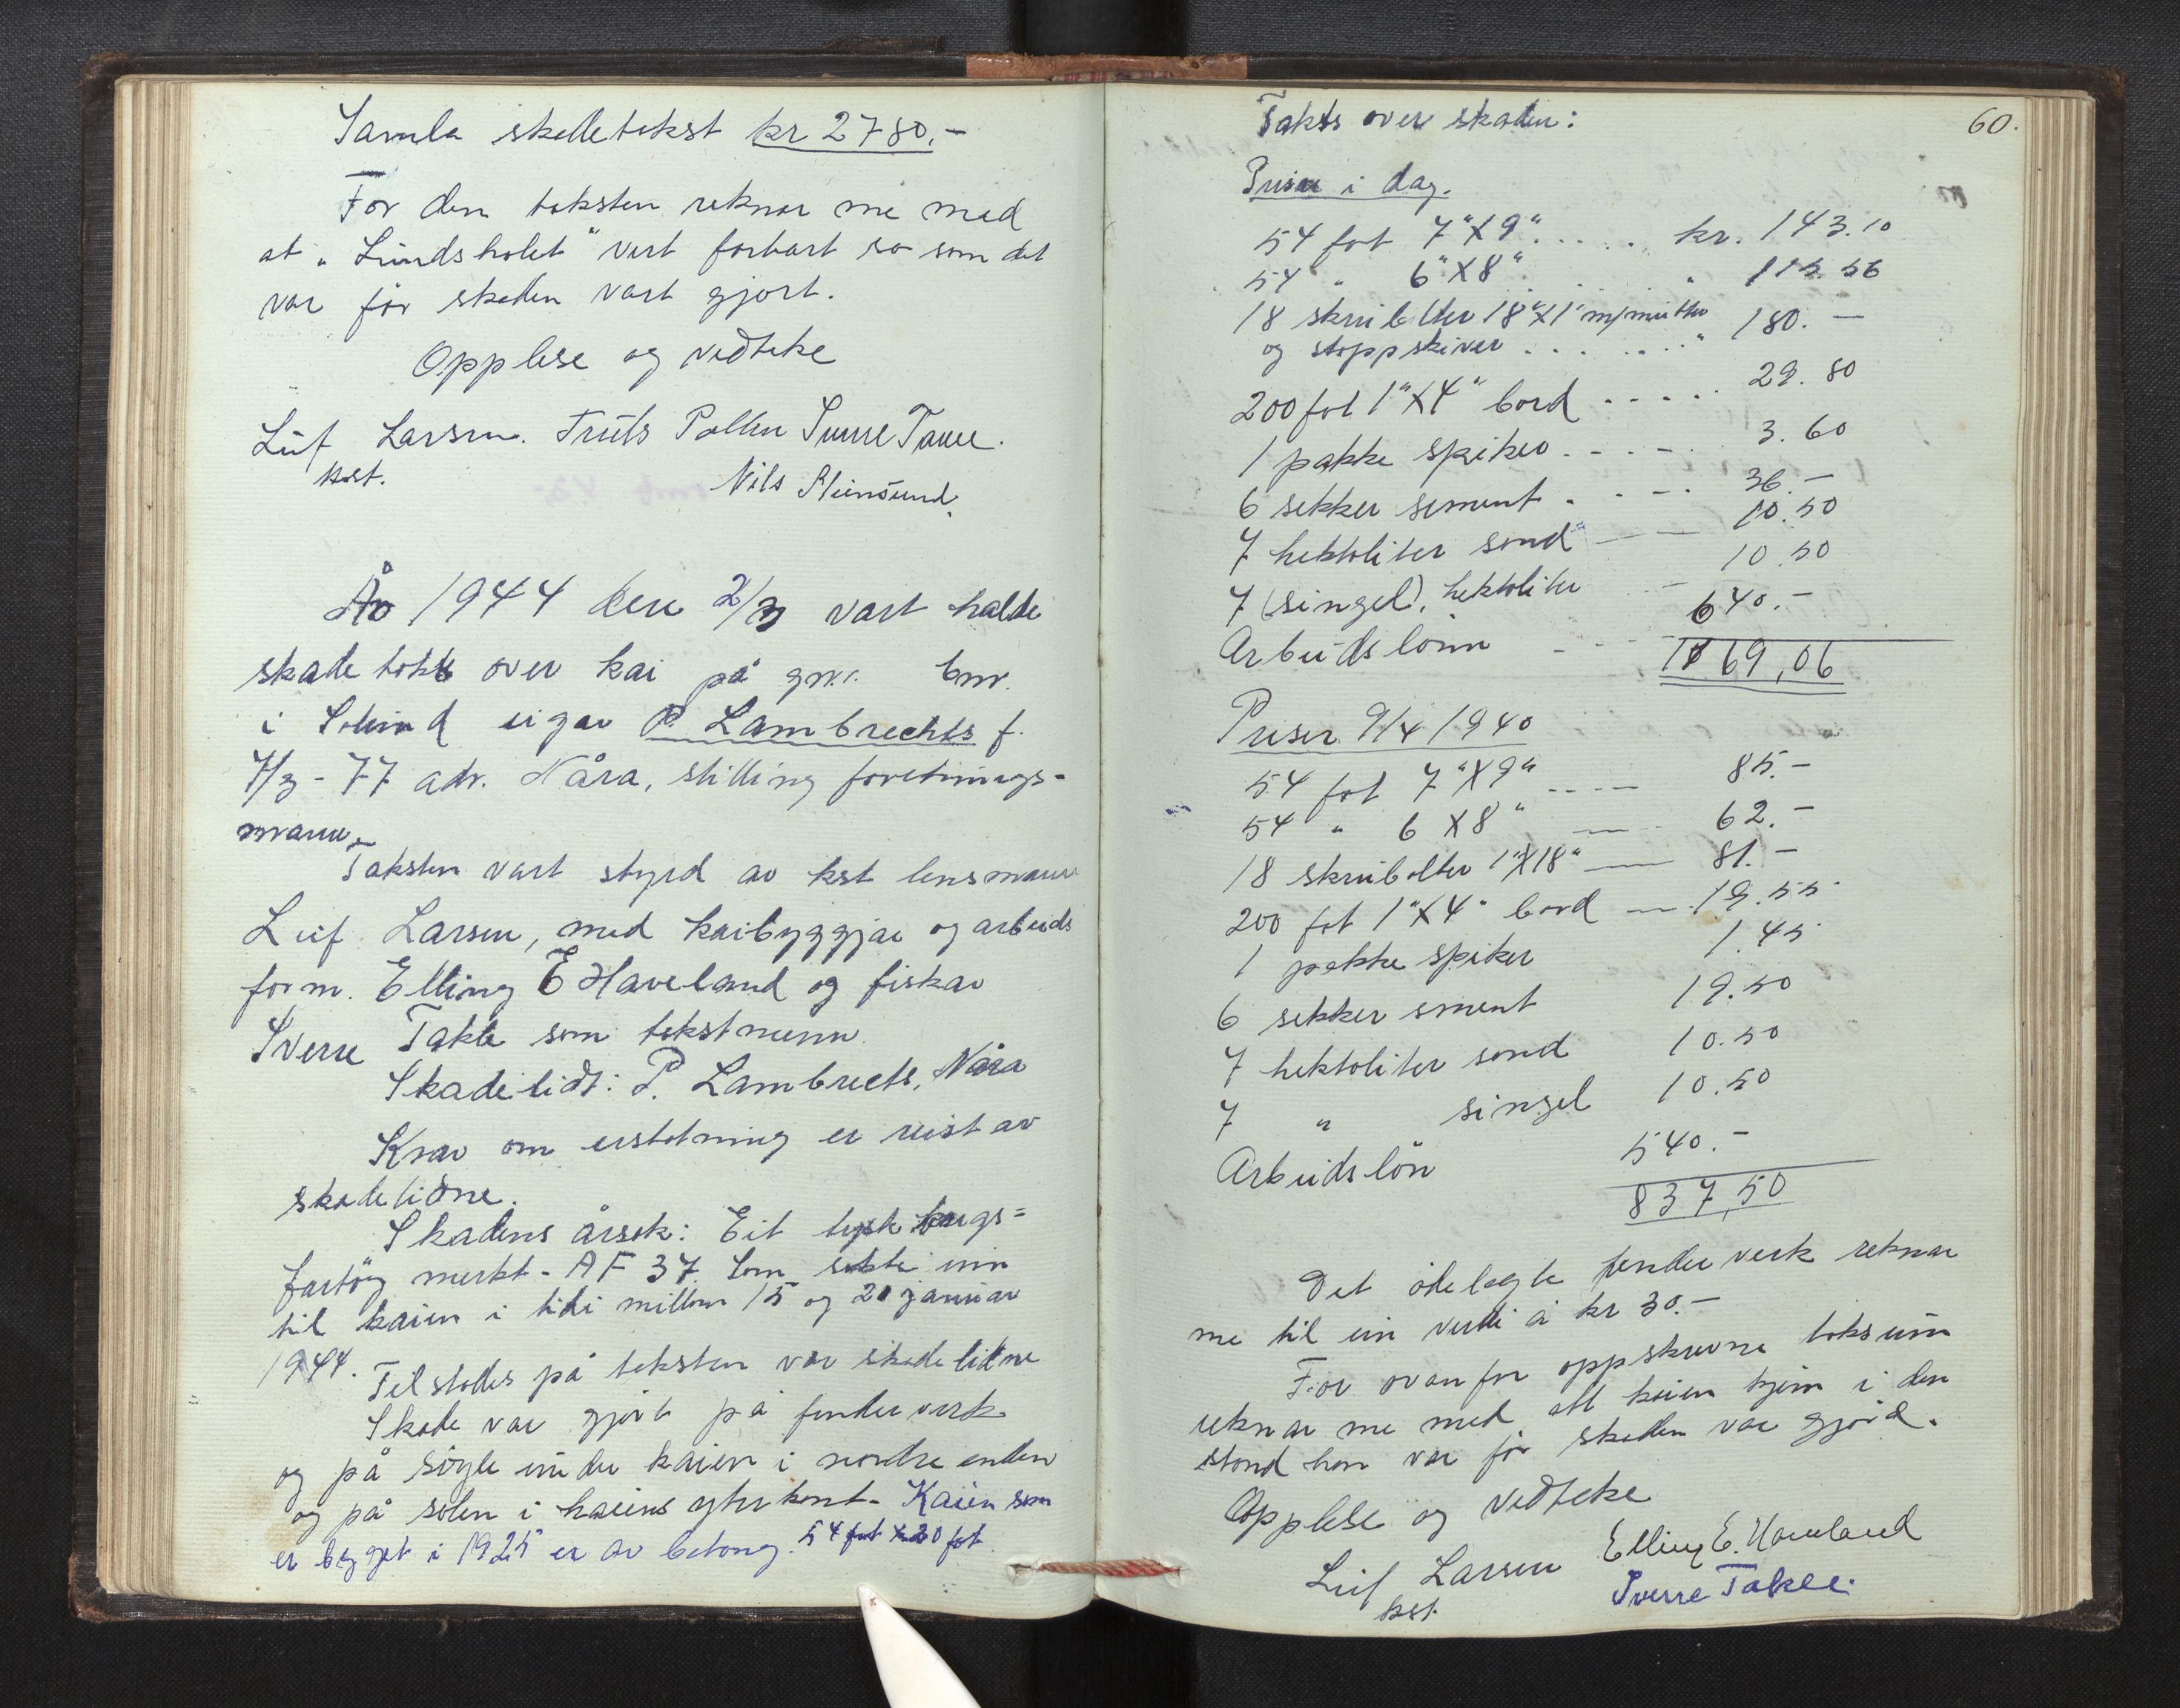 Samla skadetakst kr 2780.-
For den taksten reknar me med
at "Lundsholet" vert forbart so som det
var før skaden vart gjort.
Opplese og vedteke
Leif Larsen. Truls Pollen Sverre Takle.
kst. Nils Steinsund.
År 1944 den 2/3 vart halde
skadetakst over kai på gnr. bnr.
i Solund eigar P. Lambrechts f.
7/3-77 adr. Nåra, stilling foretnings-
mann.
Taksten vart styrd av kst lensmann
Leif Larsen, med kaibyggjar og arbeids
form. Elling E Haveland og fiskar
Sverre Takle som takstmenn.
Skadelidt: P. Lambrects, Nåra
Krav om erstatning er reist av
skadelidne.
Skadens årsak: Eit tysk krigs=
fartöy merkt - AF 37. Som sekte inn
til kaien i tidi millom 15 og 21 januar
1944.
Tilstades på taksten var skadelidne
Skade var gjort på fenderverk
og på söyle under kaien i nordre enden
og på solen i kaiens yterkant. Kaien som
er bygget i 1925 er av betong. 54 fot x 20 fot.
60.
Takst over skaden:
Priser i dag.
54 fot 7"X9" ..... kr. 143.10
54 " 6"X8" . . . " 115.56
18 skruebolter 18"X1" m/mutter
og stoppskiver . . . . . . " 180.-
200 fot 1"X4" bord ..... 29.80
1 pakke spiker .---. 3.60
6 sekker sement . .--. 36.-
7 hektoliter sand -- 10.50
7 (singel), hektoliter -- 10.50
Arbeidslönn --- 640.-
1169,06
Priser 9/4 1940
54 fot 7"X9" ---- 85.-
54 " 6 X8" ---- 62.-
18 skruebolter 1"X18" --- 81.-
200 fot 1"X4" bord --- 19.55
1 pakke spiker 1.45
6 sekker sment 19.50
7 hektoliter sand 10.50
7 " singel 10.50
Arbeidslön 540.-
837,50
Det ödelagte fenderverk reknar
me til ein verdi å kr 30.-
For ovanfor oppskrevne taksum
reknar me med att kaien kjem i den
stand han var før skaden var gjord.
Opplese og vedteke
Leif Larsen Elling E. Haveland
kst. Sverre Takle.